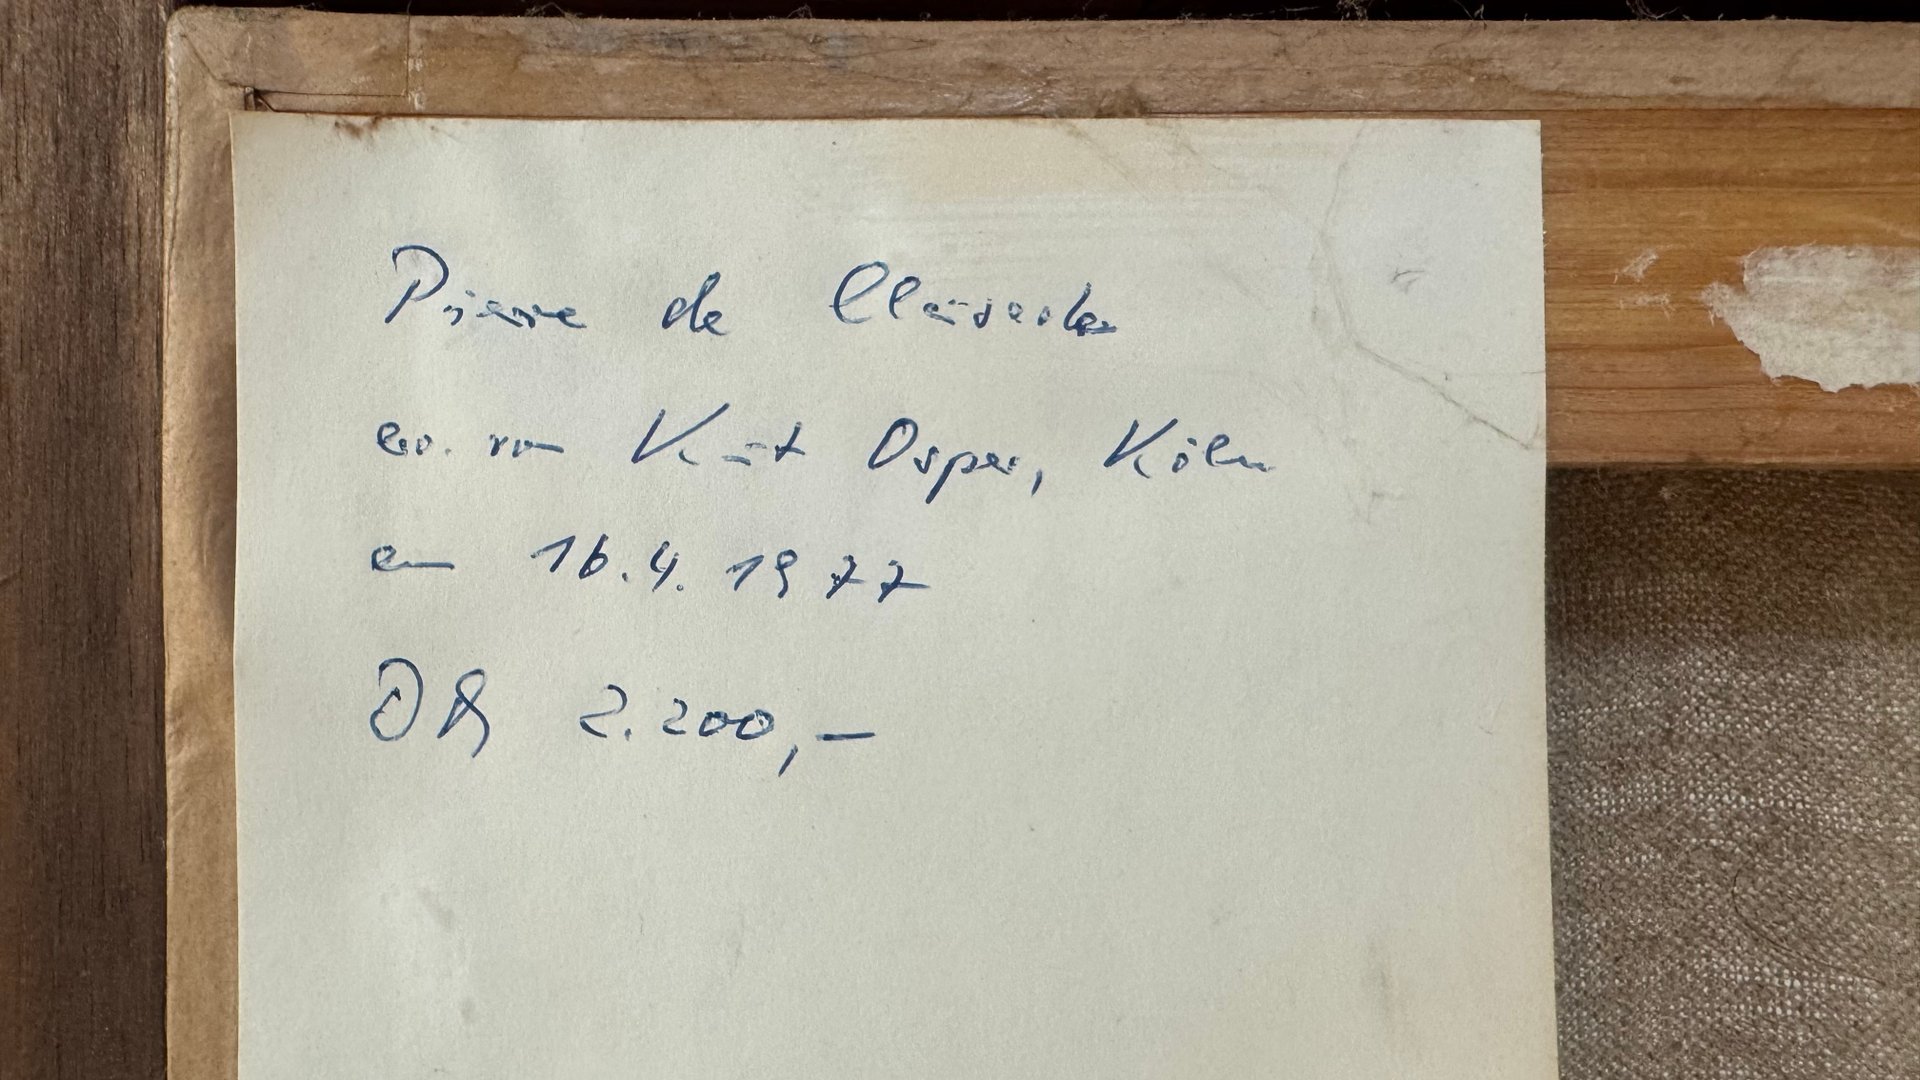 Pierre de Clausade
erw. von Kurt Osper, Köln
am 16.4.1977
DM 2.200,-